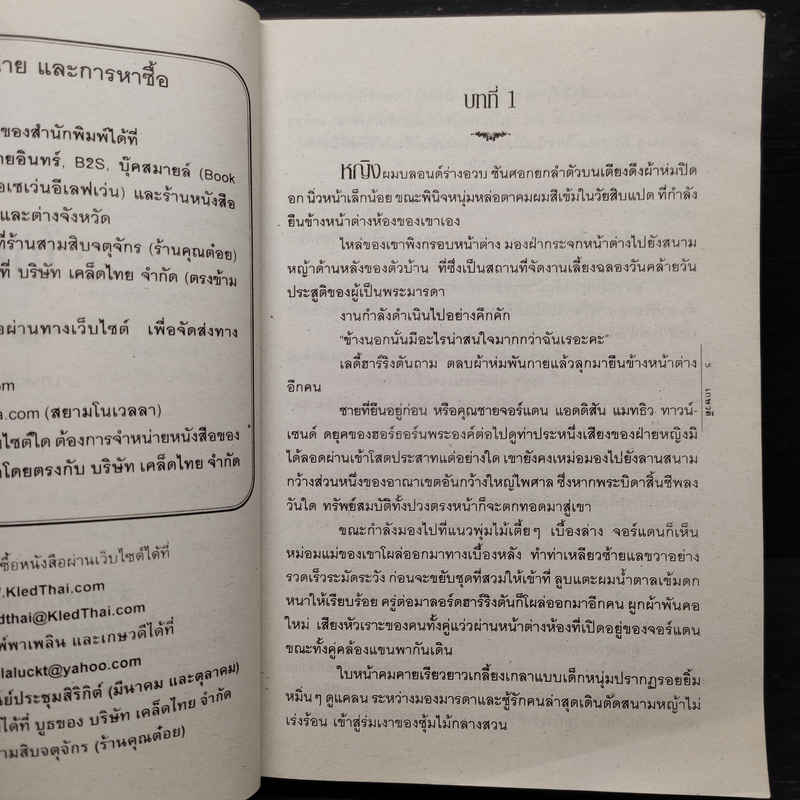 าย และการหาซื้อ
ของสำนักพิมพ์ได้ที่
ายอินทร์, B2S, บุ๊คสมายล์ (Book
อเซเว่นอีเลฟเว่น) และร้านหนังสือ
และต่างจังหวัด
ที่ร้านสามสิบจตุจักร (ร้านคุณต๋อย)
ที่ บริษัท เคล็ดไทย จำกัด (ตรงข้าม
อผ่านทางเว็บไซต์ เพื่อจัดส่งทาง
om
a.com (สยามโนเวลลา)
ไซต์ใด ต้องการจำหน่ายหนังสือของ
โดยตรงกับ บริษัท เคล็ดไทย จำกัด
ซื้อหนังสือผ่านเว็บไซต์ได้ที่
.KledThai.com
dthai@KledThai.com
พ์พาเพลิน และเกษวดีได้ที่
laluckt@yahoo.com
นย์ประชุมสิริกิต์ (มีนาคม และตุลาคม)
ได้ที่ บูธของ บริษัท เคล็ดไทย จำกัด
ามสิบจตุจักร (ร้านคุณต๋อย)
บทที่ 1
หญิงผมบลอนด์ร่างอวบ ชันศอกยกลำตัวบนเตียงดึงผ้าห่มปิด
อก นิ่วหน้าเล็กน้อย ขณะพินิจหนุ่มหล่อตาคมผมสีเข้มในวัยสิบแปด ที่กำลัง
ยืนข้างหน้าต่างห้องของเขาเอง
ไหล่ของเขาพิงกรอบหน้าต่าง มองฝ่ากระจกหน้าต่างไปยังสนาม
หญ้าด้านหลังของตัวบ้าน ที่ซึ่งเป็นสถานที่จัดงานเลี้ยงฉลองวันคล้ายวัน
ประสูติของผู้เป็นพระมารดา
งานกำลังดำเนินไปอย่างคึกคัก
“ข้างนอกนั่นมีอะไรน่าสนใจมากกว่าฉันเรอะคะ”
เลดี้ฮาร์ริงตันถาม ตลบผ้าห่มพันกายแล้วลุกมายืนข้างหน้าต่าง
อีกคน
ชายที่ยืนอยู่ก่อน หรือคุณชายจอร์แดน แอดดิสัน แมทธิว ทาวน์-
เซนด์ ดยุคของฮอร์ธอร์นพระองค์ต่อไปดูท่าประหนึ่งเสียงของฝ่ายหญิงมิ
ได้ลอดผ่านเข้าโสตประสาทแต่อย่างใด เขายังคงเหม่อมองไปยังลานสนาม
กว้างส่วนหนึ่งของอาณาเขตอันกว้างใหญ่ไพศาล ซึ่งหากพระบิดาสิ้นชีพลง
วันใด ทรัพย์สมบัติทั้งปวงตรงหน้าก็จะตกทอดมาสู่เขา
ขณะกำลังมองไปที่แนวพุ่มไม้เตี้ยๆ เบื้องล่าง จอร์แดนก็เห็น
หม่อมแม่ของเขาโผล่ออกมาทางเบื้องหลัง ทำท่าเหลียวซ้ายแลขวาอย่าง
รวดเร็วระมัดระวัง ก่อนจะขยับชุดที่สวมให้เข้าที่ ลูบแตะผมน้ำตาลเข้มดก
หนาให้เรียบร้อย ครู่ต่อมาลอร์ดฮาร์ริงตันก็โผล่ออกมาอีกคน ผูกผ้าพันคอ
ใหม่ เสียงหัวเราะของคนทั้งคู่แว่วผ่านหน้าต่างห้องที่เปิดอยู่ของจอร์แดน
ขณะทั้งคู่คล้องแขนพากันเดิน
ใบหน้าคมคายเรียวยาวเกลี้ยงเกลาแบบเด็กหนุ่มปรากฏรอยยิ้ม
หมิ่นๆ ดูแคลน ระหว่างมองมารดาและชู้รักคนล่าสุดเดินตัดสนามหญ้าไม่
เร่งร้อน เข้าสู่ร่มเงาของซุ้มไม้กลางสวน
5
เกษวดี